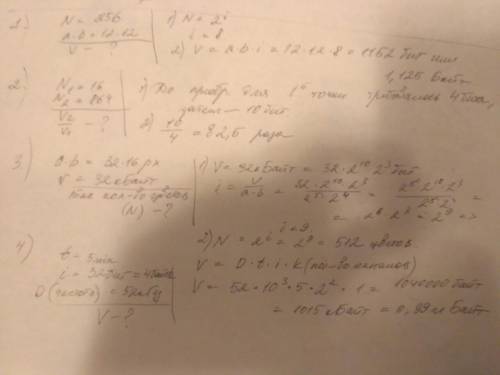 1.) N = 256
a·b = 12·12
V - ?
1) N = 2^i
i = 8
2) V = a·b·i = 12·12·8 = 1152 бит или
1,125 Байт
2.) N₁ = 16
N₂ = 864
V₂/V₁ - ?
1) До для 1ой точки 4 бита,
затем — 10 бит
2) 10/4 = 2,5 раза
3.) a·b = 32·16 px
V = 32 кБайт
кол-во цветов
(N) - ?
1) V = 32 кБайт = 32·2^10·2^3 бит
i = V/(a·b) = (32·2^10·2^3)/(2^5·2^4) = (2^5·2^10·2^3)/(2^5·2^4) =
= 2^6·2^3 = 2^9 =>
i = 9
2) N = 2^i = 2^9 = 512 цветов
4) t = 5 min
i = 32 бит = 4 байта
D (частота) = 52 кГц
V - ?
V = D·t·i·k (кол-во каналов)
V = 52·10^3·5·2^2·1 = 1040000 байт
= 1015 кБайт = 0,99 мБайт